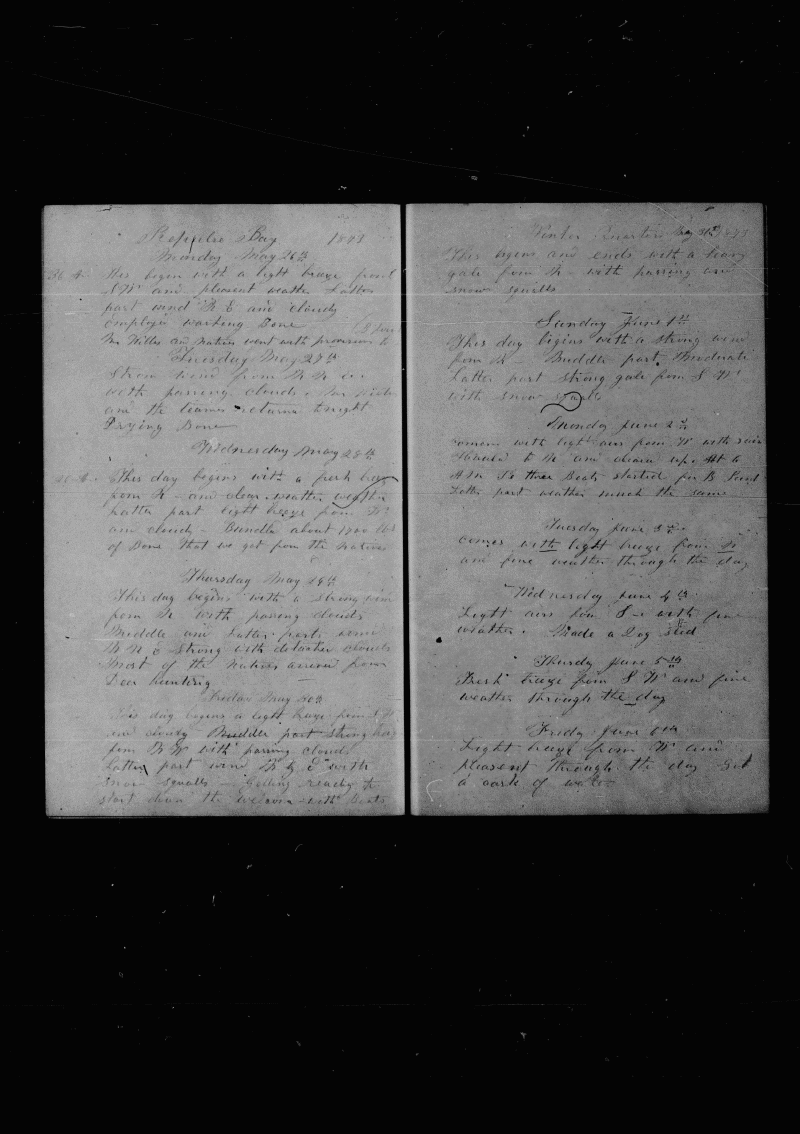 Repulse Bay 1873
Monday May 26th
This begins with a light breeze from
N W and pleasent weather Latter
part wind N E and cloudy
employe working Bone
Mr Willes and Natives went with provision to
Tuesday May 27th
Strong wind from N N
with passing clouds.
and the teams returns tonight
Drying Bone
Wednesday May 28th
This day begins with a fresh
from N - and clear weather weather
Latter part light breeze from
and cloudy - Bundle about lbs
of Bone that we got from the Natives
Thursday May 29th
This day begins with a strong wind
from N with passing clouds
Middle and Latter parts wind
N N E Strong with detached clouds
Most of the Natives arrived from
Deer hunting
Friday May 30th
This day begins a light breeze from
and cloudy Middle part strong
from N W with passing clouds
latter part wind N & E with
snow squalls - Getting ready to
start down the with Boats
Winter Quarters May 31st 1873
This begins and ends with a heavy
gale from N - with passing and
snow squalls
Sunday June 1st
This day begins with a strong wind
from N - Middle part, Moderate
Latter part strong gale from S W
with snow squalls
Monday June 2nd
comens with light airs from W with
to N and cleared up. At 2
A M three Boats started for
Latter part weather much the same
Tuesday June 3rd
comes with light breeze from N
and fine weather through the day
Wednesday June 4th
Light airs from S - with fine
weather. Made a Dog sled
Thursdy June 5th
Fresh breeze from S W and fine
weather through the day
Fridy June 6th
Light breeze from W and
pleasent through the day Got
a cask of water